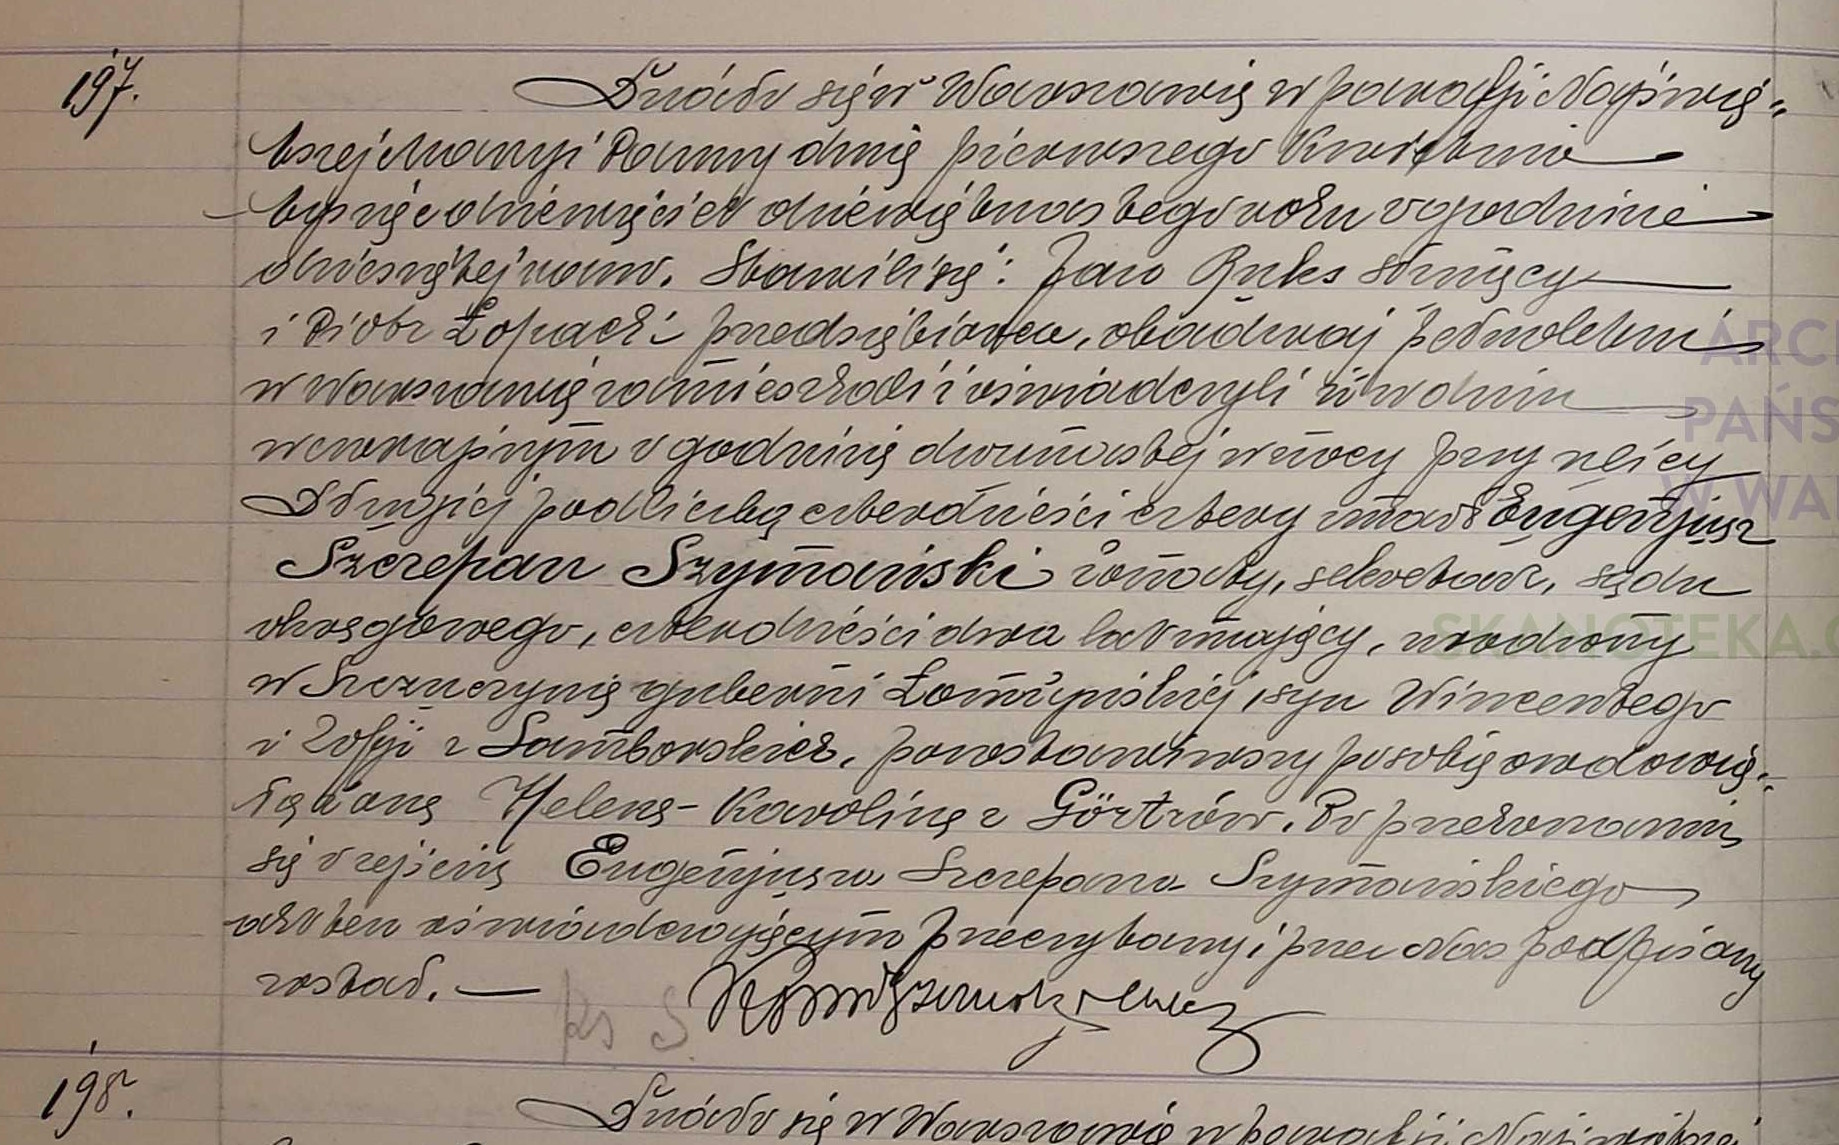 197.
Działo się w Warszawie w parafji Najświę-
tszej Maryi Panny dnia pierwszego Kwietnia
tysiąc dziewięćset dziewiętnastego roku o godzinie
dziesiątej rano. Stawili się: Jan Ruks służący
i Piotr Łopacki przedsiębiorca, obadwaj pełnoletni
w Warszawie zamieszkali i oświadczyli że w dniu
wczorajszym o godzinie dwunastej w nocy przy ulicy
Długiej pod liczbą czterdzieści cztery umarł Eugenjusz
Szczepan Szymański żonaty, sekretarz, sądu
okręgowego, czterdzieści dwa lat mający, urodzony
w Szczuczynie gubernii Łomżyńskiej, syn Wincentego
i Zofji z Samborskich, pozostawiwszy po sobie owdowia-
łą żonę Helenę-Karolinę z Görtzów. Po przekonaniu
się o zejściu Eugenjusza Szczepana Szymańskiego
akt ten oświadczającym przeczytany i przez Nas podpisany
został. —
ks S.
198.
Działo się w Warszawie w parafji Najświętszej
ARCH
PAŃS
W WAR
SKANOTEKA.G